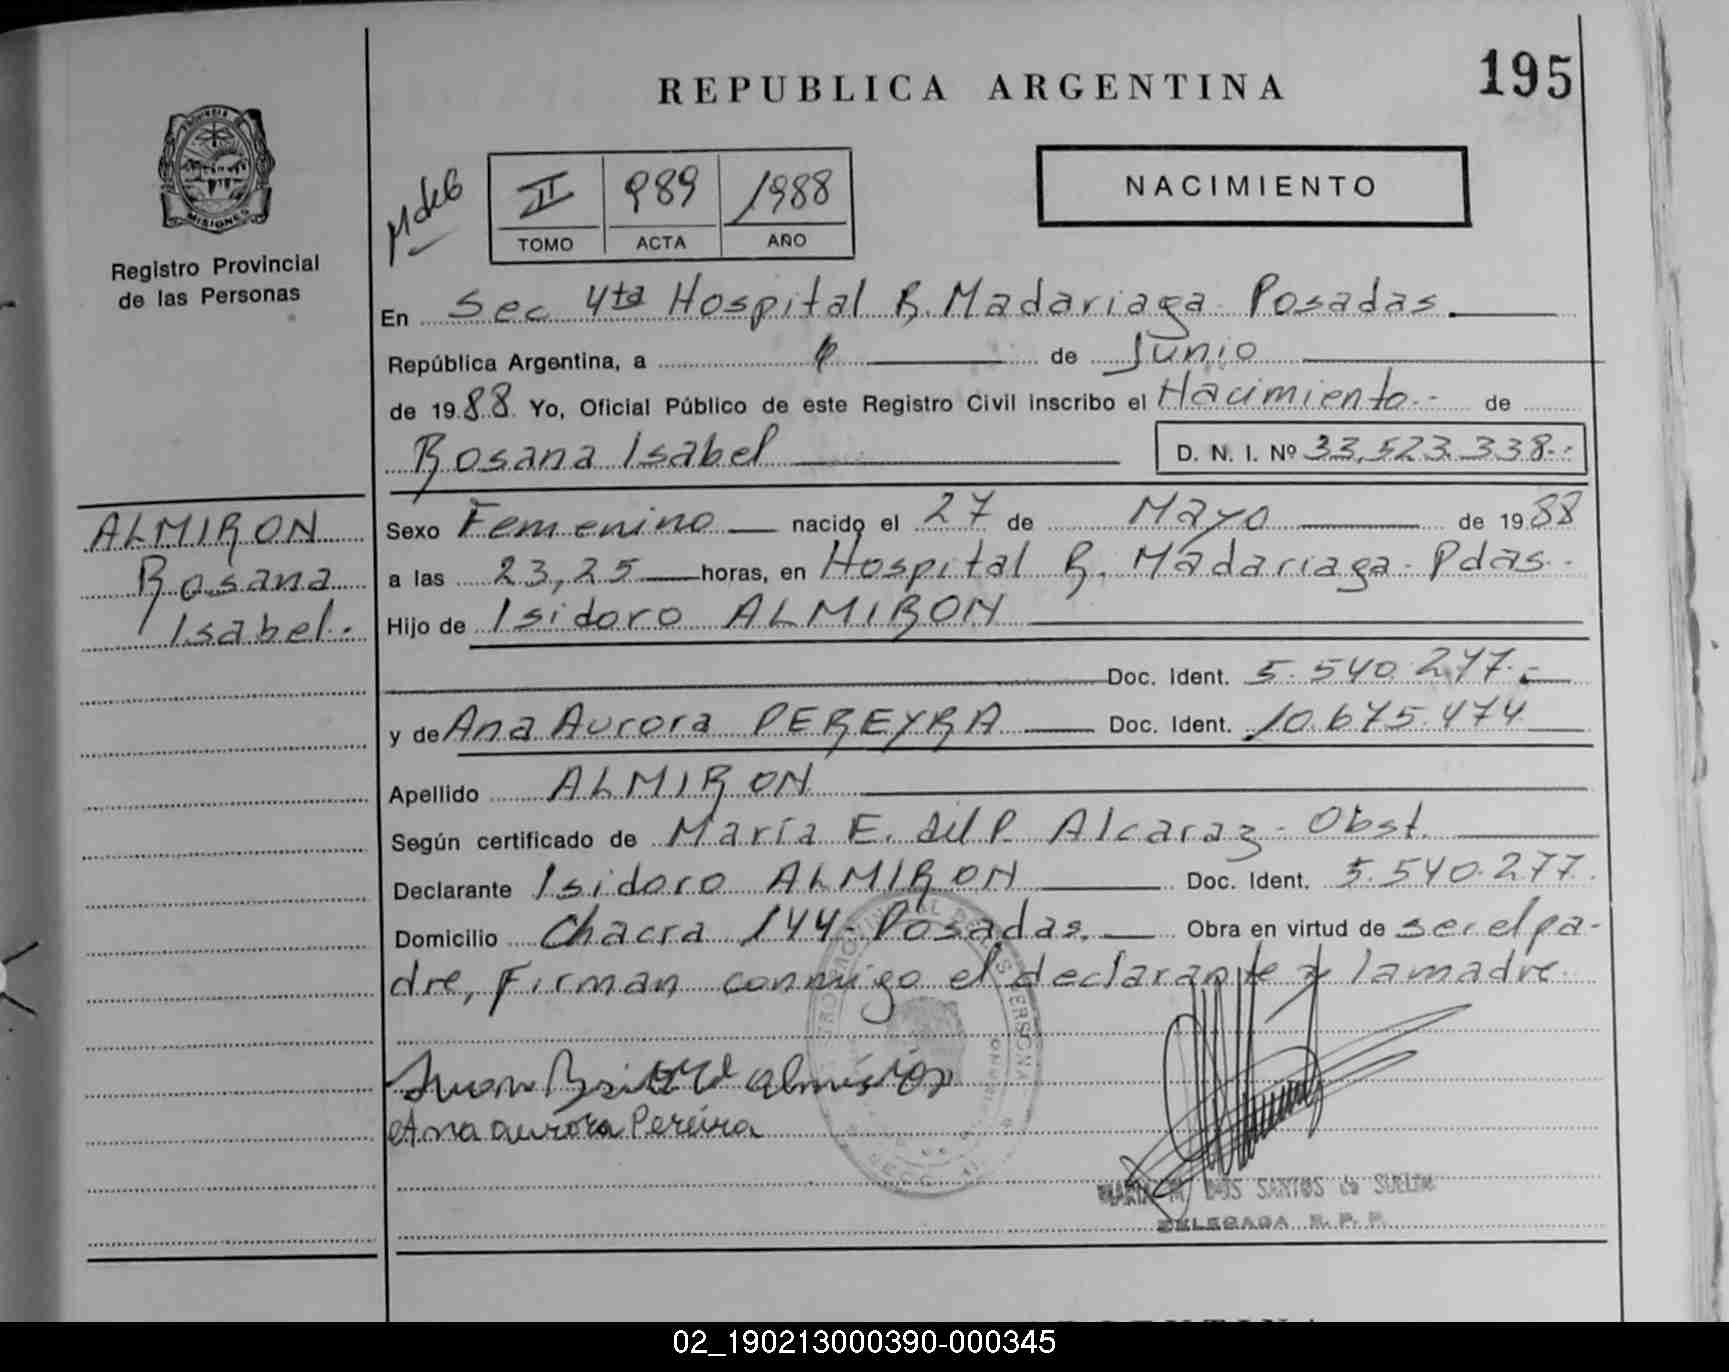 REPUBLICA ARGENTINA
195
PROVINCIA DE MISIONES
Registro Provincial
de las Personas
II 989 1988
TOMO ACTA AÑO
NACIMIENTO
En Sec 4ta Hospital R. Madariaga Posadas.
República Argentina, a de Junio
de 1988 Yo, Oficial Público de este Registro Civil inscribo el Nacimiento.- de
Rosana Isabel D. N. I. Nº 33,523.338.-
ALMIRON
Rosana
Isabel.
Sexo Femenino nacido el 27 de Mayo de 1988
a las 23,25 horas, en Hospital R. Madariaga. Pdas.
Hijo de Isidoro ALMIRON
Doc. Ident. 5.540.277.
y de Ana Aurora PEREYRA Doc. Ident. 10.675.474
Apellido ALMIRON
Según certificado de María E. del P. Alcaraz - Obst.
Declarante Isidoro ALMIRON Doc. Ident. 5.540.277.
Domicilio Chacra 144- Posadas. Obra en virtud de ser el pa-
dre, Firman conmigo el declarante y la madre.
Ana aurora Pereira
MARIA M. DOS SANTOS de SUELDO
DELEGADA R. P. P.
02_190213000390-000345